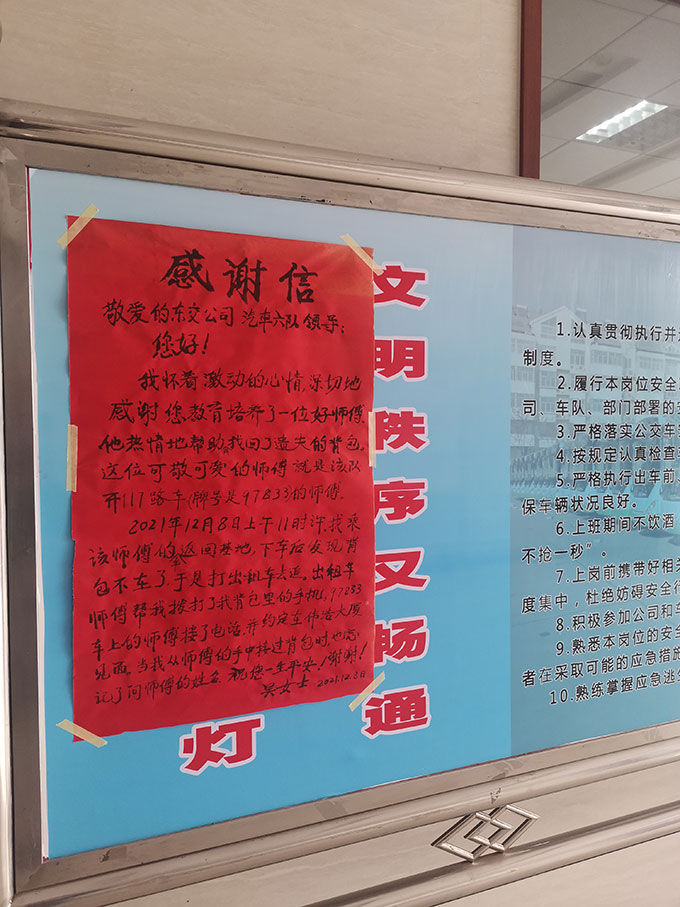 感谢信
敬爱的东交公司 汽车六队领导:
您好!
我怀着激动的心情,深切地
感谢您教育培养了一位好师傅.
他热情地帮助我找回了遗失的背包.
这位可敬可爱的师傅就是该队
开117路车(牌号是97833)的师傅.
2021年12月8日上午11时许,我乘
该师傅的车返回基地,下车后发现背
包不在了,于是打出租车去追。出租车
师傅帮我拨打了我背包里的手机,97833
车上的师傅接了电话,并约定在伟浩大厦
见面。当我从师傅的手中接过背包时也忘
记了问师傅的姓名 祝您一生平安!谢谢!
吴女士 2021.12.8日
文明秩序又畅通
灯
1.认真贯彻执行并
制度。
2.履行本岗位安全
司、车队、部门部署的
3.严格落实公交车
4.按规定认真检查
5.严格执行出车前、
保车辆状况良好。
6.上班期间不饮酒
不抢一秒”。
7.上岗前携带好相
度集中,杜绝妨碍安全行
8.积极参加公司和车
9.熟悉本岗位的安全
者在采取可能的应急措施
10.熟练掌握应急逃生